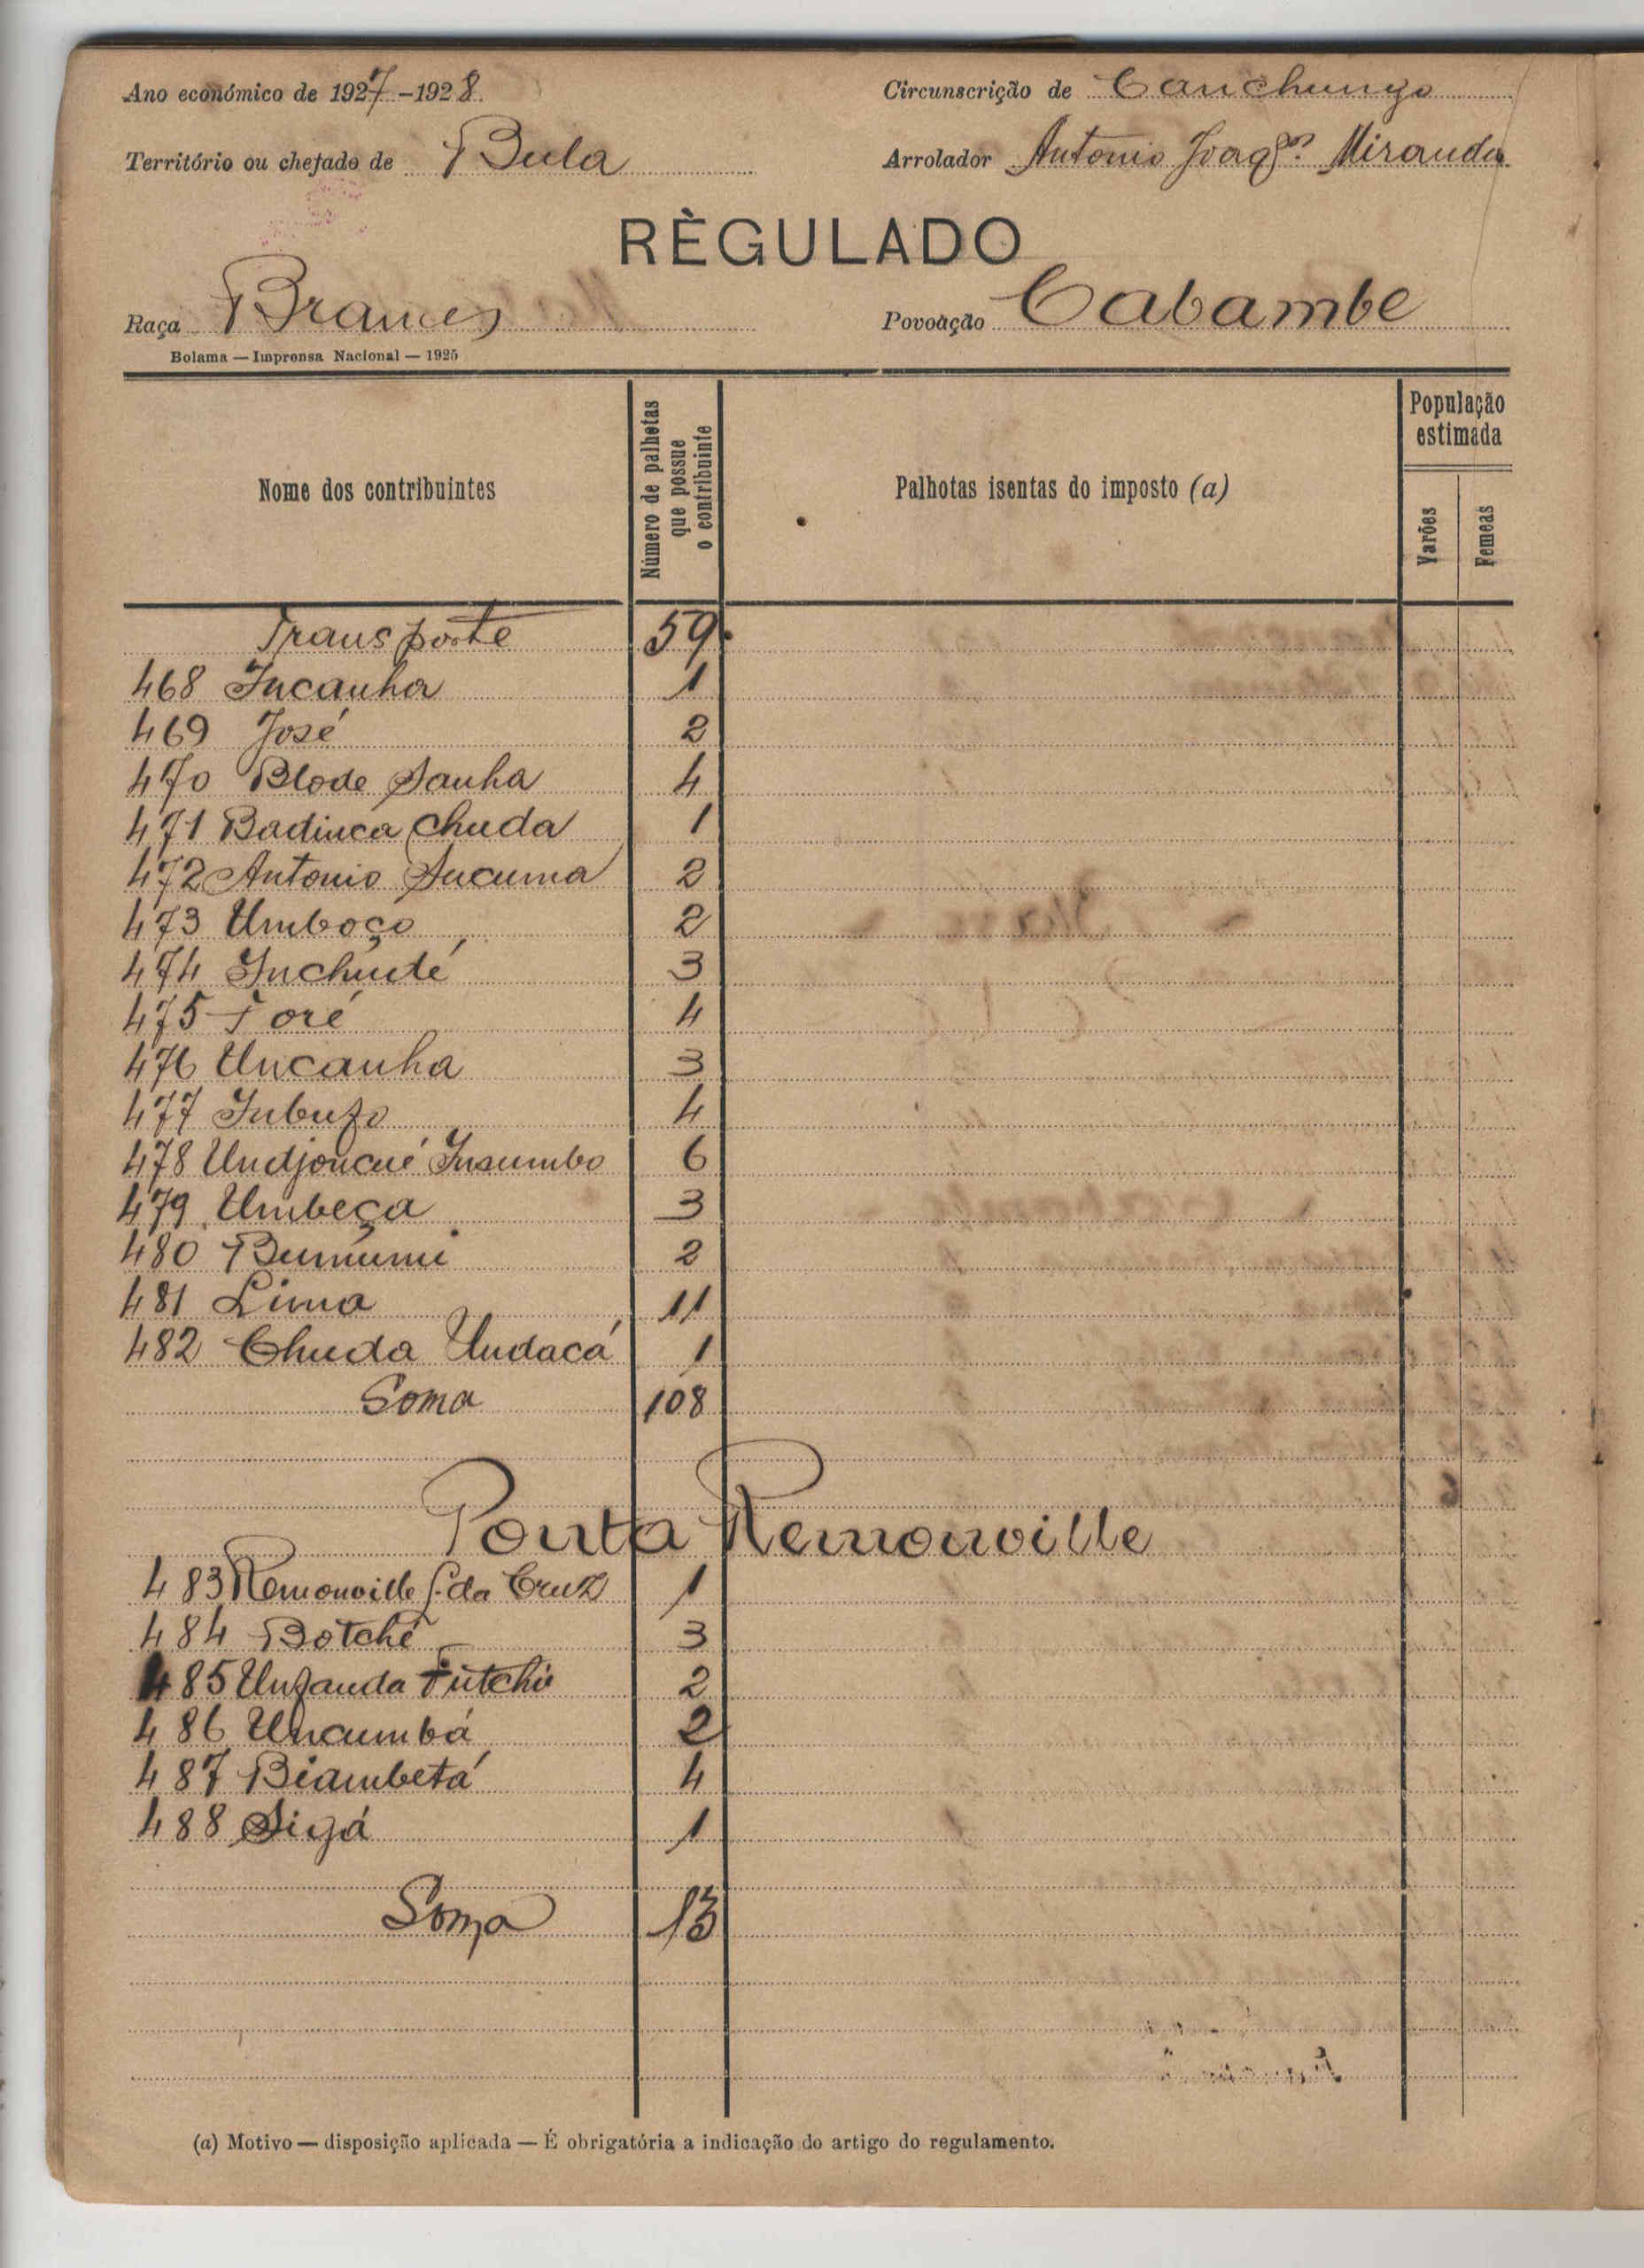 Ano económico de 1927-1928.
Circunscrição de Canchungo
Território ou chefado de Bula
Arrolador Antonio Joaqm. Miranda
RÈGULADO
Raça Brames
Povoação Cabambe
Bolama — Imprensa Nacional — 1925
Nome dos contribuintes
Número de palhotas que possue o contribuinte
Palhotas isentas do imposto (a)
População estimada
Varões
Femeas
Transporte 59
468 Incanha 1
469 José 2
470 Blode Sanha 4
471 Badinca Chuda 1
472 Antonio Sucuma 2
473 Umboço 2
474 Inchudé 3
475 Foré 4
476 Uncanha 3
477 Inbuzo 4
478 Undjoncué Insumbo 6
479 Umbeça 3
480 Bumumi 2
481 Lima 11
482 Chuda Undacá 1
Soma 108
Ponta Remonville
483 Remonville S. da Cruz 1
484 Botché 3
485 Unzanda Futchi 2
486 Uncumbá 2
487 Biambetá 4
488 Sigá 1
Soma 13
(a) Motivo — disposição aplicada — É obrigatória a indicação do artigo do regulamento.